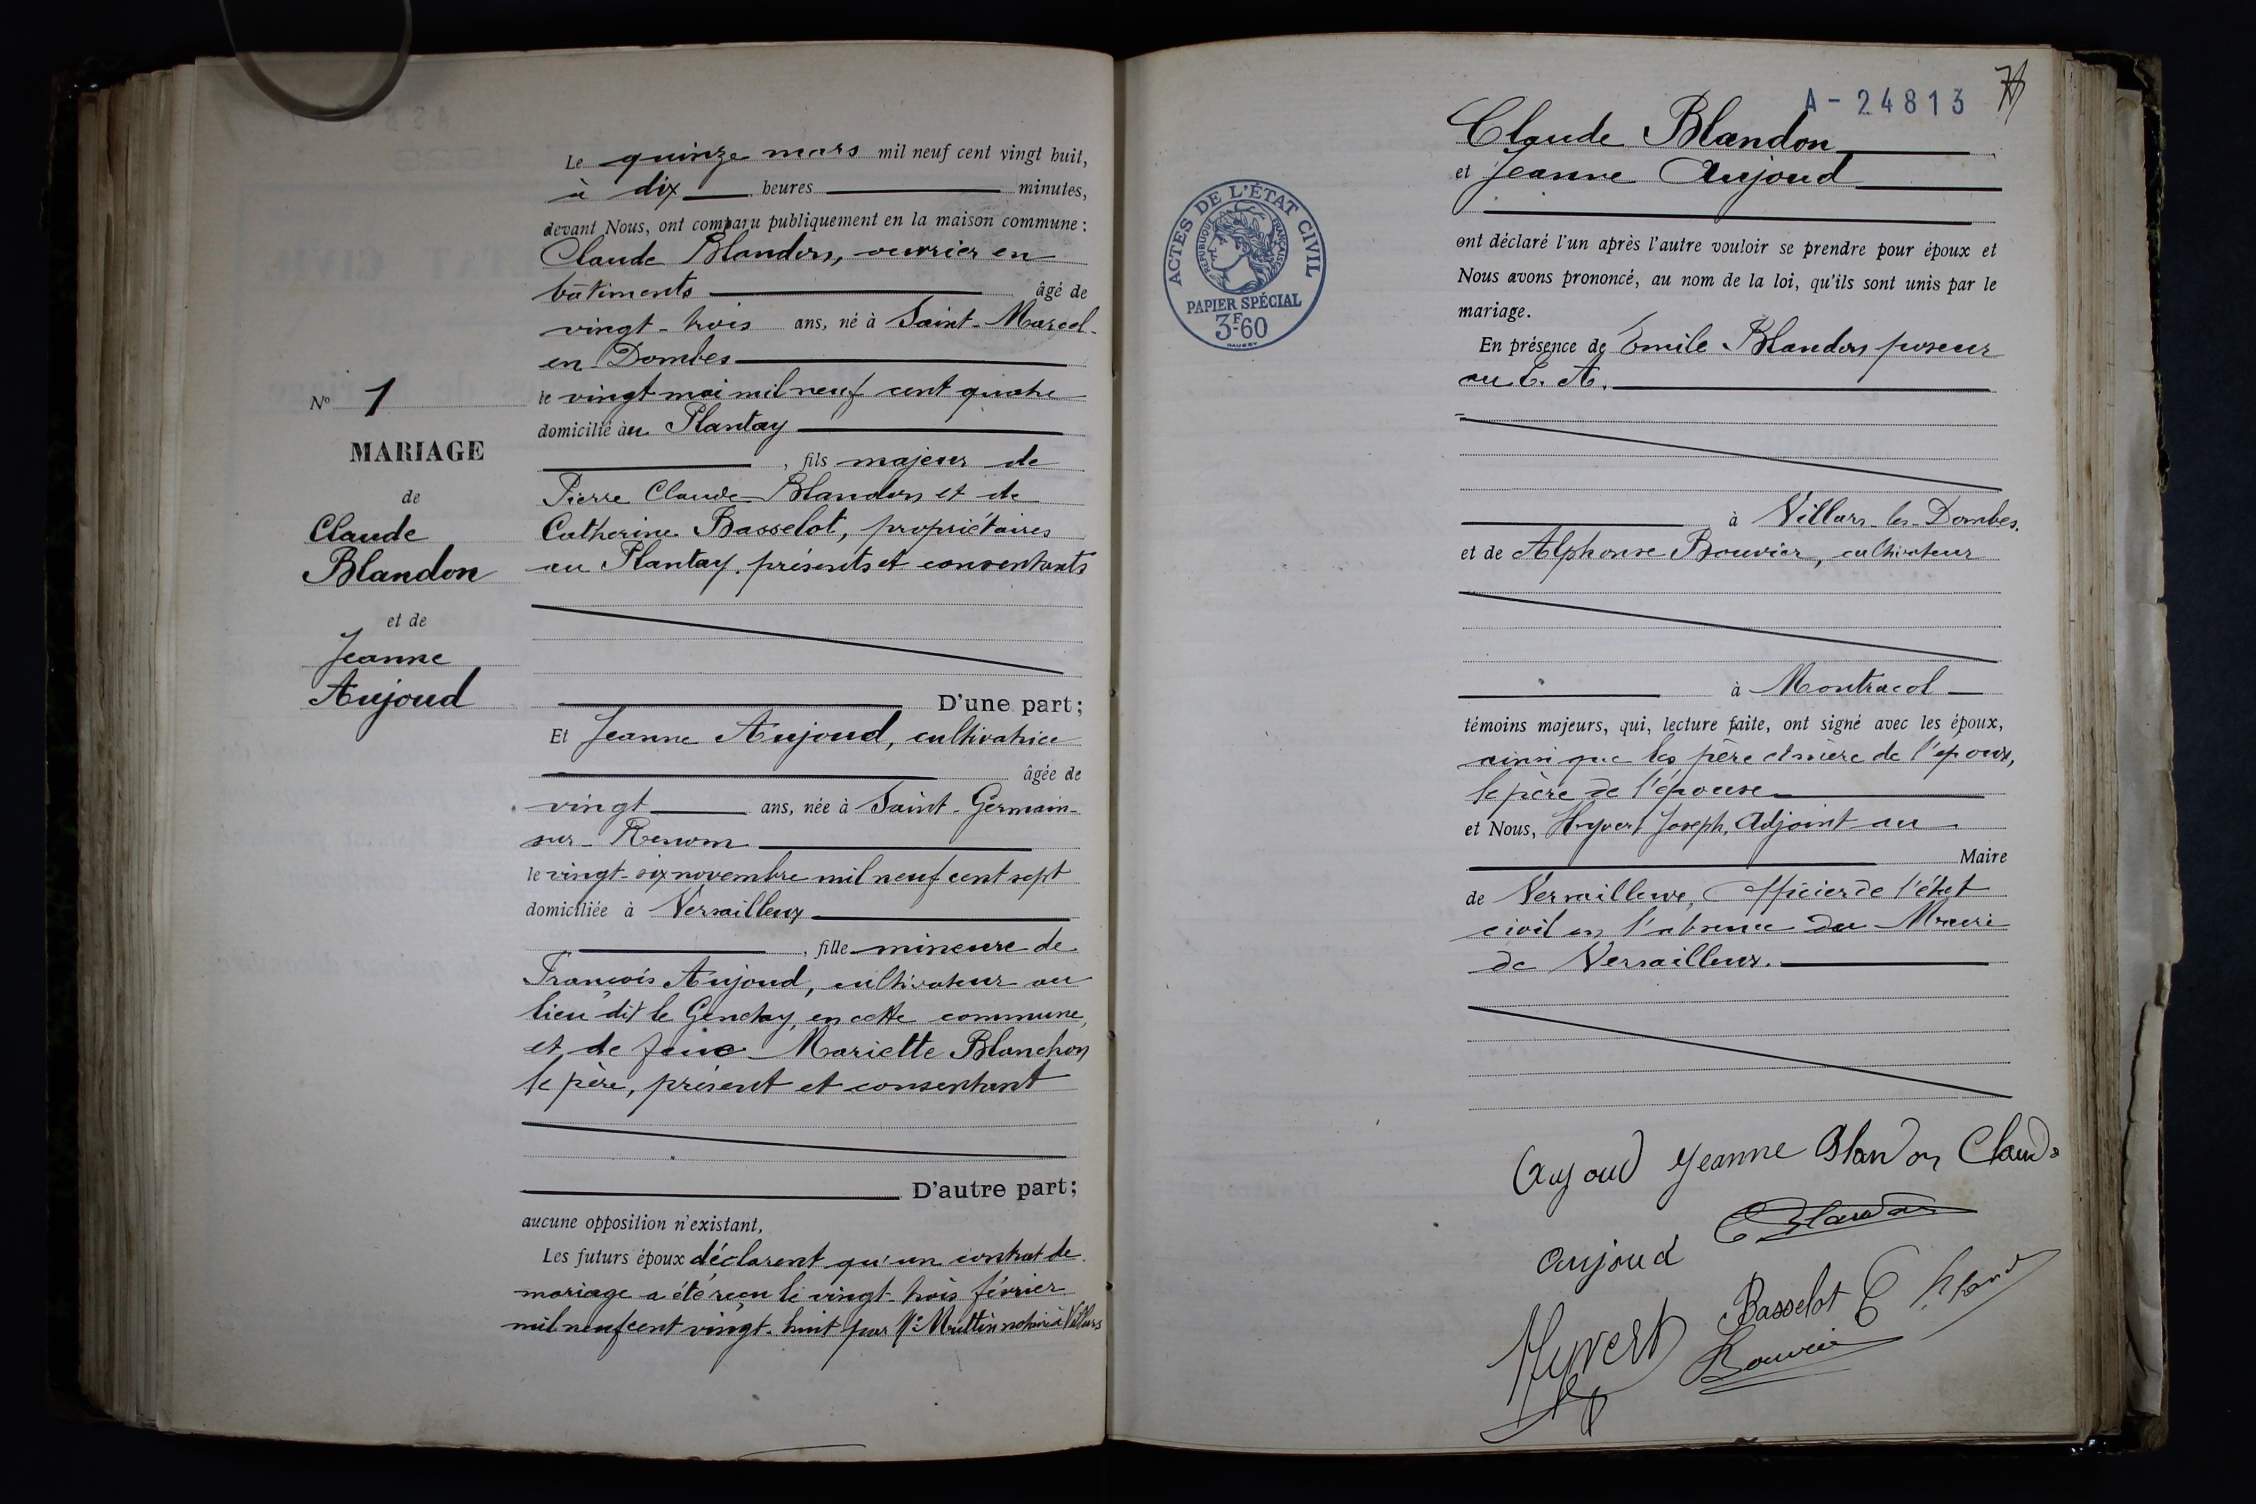 Le quinze mars mil neuf cent vingt huit,
à dix heures minutes,
devant Nous, ont comparu publiquement en la maison commune :
Claude Blandon, ouvrier en
bâtiments âgé de
vingt-trois ans, né à Saint-Marcel-
en Dombes
le vingt mai mil neuf cent quatre
domicilié au Plantay
, fils majeur de
Pierre Claude Blandon et de
Catherine Basselot, propriétaires
au Plantay, présents et consentants
D'une part;
Et Jeanne Aujoud, cultivatrice
âgée de
vingt ans, née à Saint-Germain-
sur-Renom
le vingt-six novembre mil neuf cent sept
domiciliée à Versailleux
, fille mineure de
François Aujoud, cultivateur au
lieu dit le Genetay, en cette commune,
et de feue Mariette Blanchon
le père, présent et consentant
D'autre part;
aucune opposition n'existant,
Les futurs époux déclarent qu'un contrat de
mariage a été reçu le vingt-trois février
mil neuf cent vingt-huit par Me Muttin notaire à Villars
No 1
MARIAGE
de
Claude
Blandon
et de
Jeanne
Aujoud
A-24813
Claude Blandon
et Jeanne Aujoud
ont déclaré l'un après l'autre vouloir se prendre pour époux et
Nous avons prononcé, au nom de la loi, qu'ils sont unis par le
mariage.
En présence de Emile Blandon poseur
au
à Villars-les-Dombes.
et de Alphonse Bouvier, cultivateur
à Montracol
témoins majeurs, qui, lecture faite, ont signé avec les époux,
ainsi que les père et mère de l'époux,
le père de l'épouse
et Nous, Hyvert Joseph, Adjoint au
Maire
de Versailleux, Officier de l'état
civil en l'absence du Maire
de Versailleux.
ACTES DE L'ÉTAT CIVIL
RÉPUBLIQUE FRANÇAISE
PAPIER SPÉCIAL
3F60
Aujoud Jeanne Blandon Claude
Aujoud Blandon
Basselot C
Hyvert Bouvier